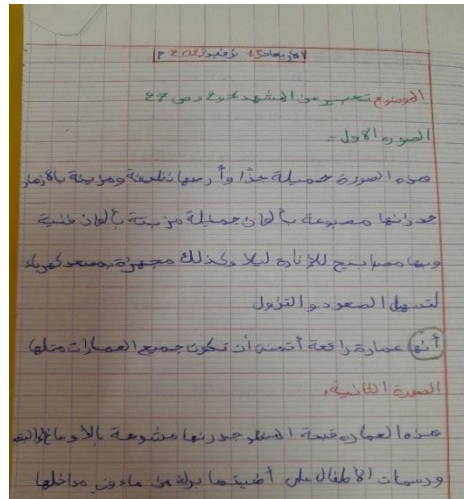 الأربعاء 15 نوفمبر 2023 م
الموضوع تعبير عن المشهد ص 27
الصورة الأولى-
هذه الصورة جميلة جدًا وأرضها نظيفة ومزينة بالأزهار
جدرانها مصبوغة بألوان جميلة مزينة بألوان فنية
وبها مصابيح للإنارة ليلا وكذلك مجهزة بمصعد كهربائ
لتسهل الصعود والنزول
أنها عمارة رائعة أتمنى أن تكون جميع العمارات مثلها
الصورة الثانية.
هذه العمارة قبيحة المنظر جدرنها مشوهة بالأوساغ
ورسمات الأطفال على مداخلها